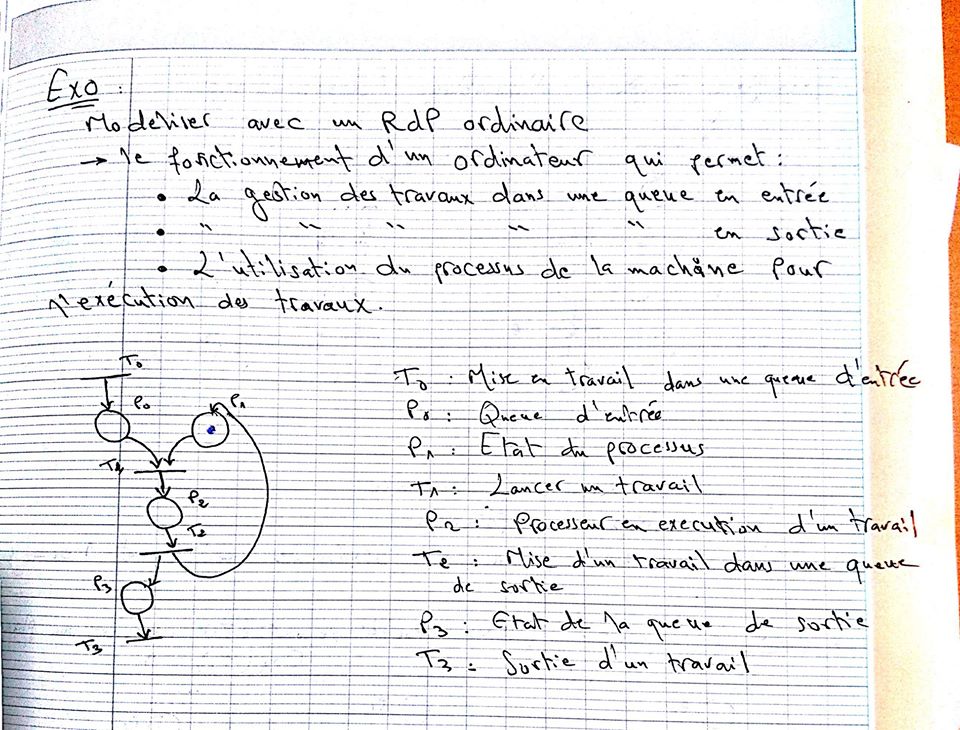 Exo :
Modéliser avec un RdP ordinaire
→ le fonctionnement d'un ordinateur qui permet :
• La gestion des travaux dans une queue en entrée
• " " " " " en sortie
• L'utilisation du processus de la machine pour
l'exécution des travaux.
T0
P0
P1
T1
P2
T2
P3
T3
T0 : Mise en travail dans une queue d'entrée
P0 : Queue d'entrée
P1 : Etat du processus
T1 : Lancer un travail
P2 : Processeur en execution d'un travail
T2 : Mise d'un travail dans une queue
de sortie
P3 : Etat de la queue de sortie
T3 : Sortie d'un travail